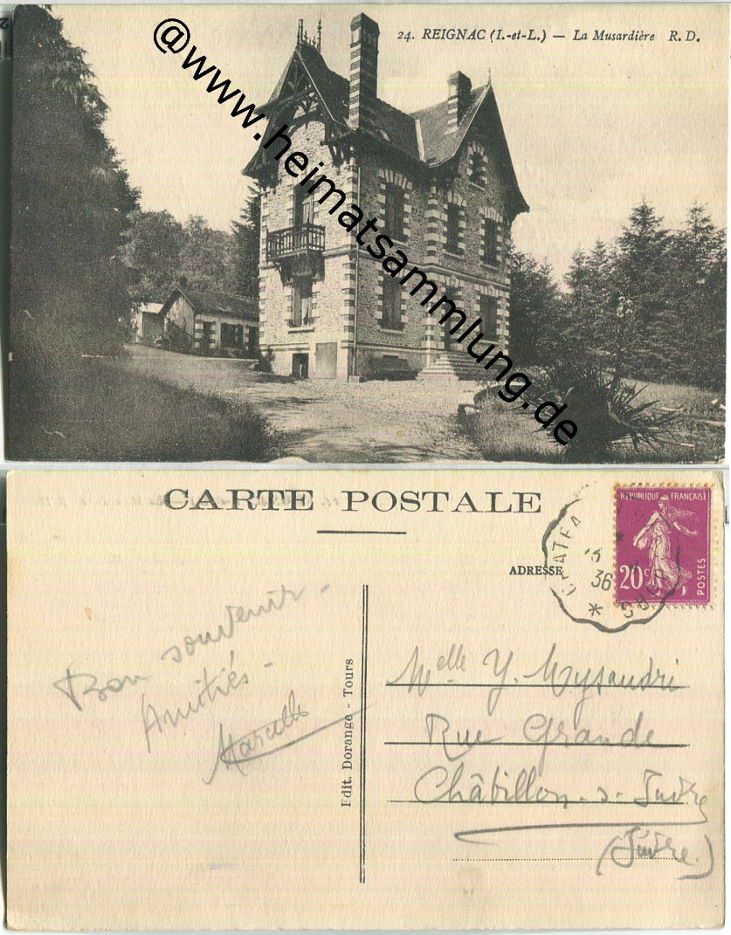 24. REIGNAC (I.-et-L.) — La Musardière R. D.
@www.heimatsammlung.de
CARTE POSTALE
ADRESSE
REPUBLIQUE FRANÇAISE
20c
POSTES
36
Bon souvenir -
Amitiés -
Marcelle
Edit. Dorange - Tours
Melle Y. Mysandri
Rue Grande
Châtillon-s-Indre
(Indre)